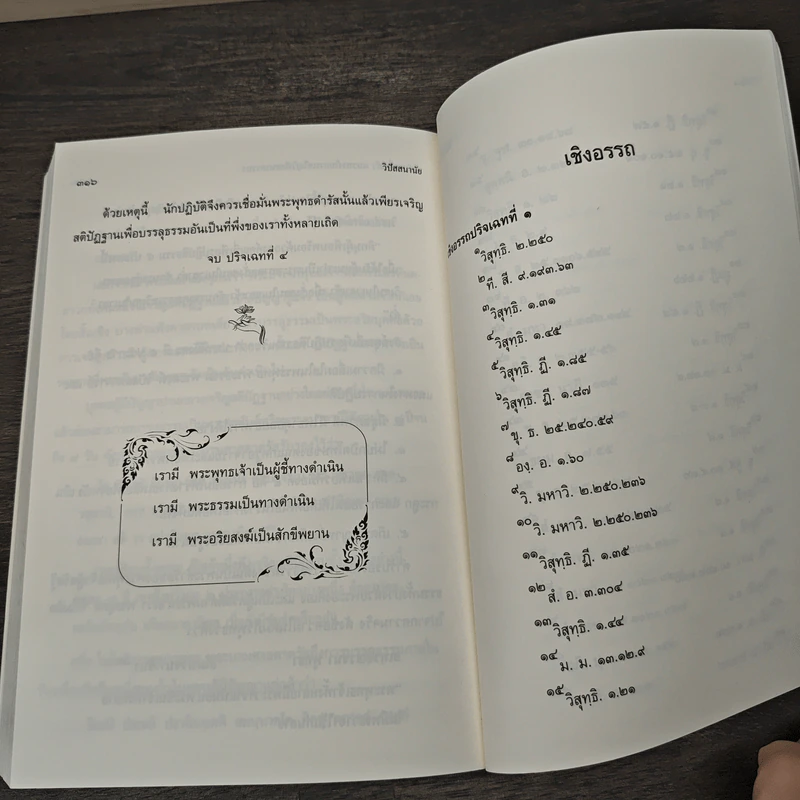 ๓๑๖
วิปัสสนานัย
ด้วยเหตุนี้ นักปฏิบัติจึงควรเชื่อมั่นพระพุทธดำรัสนั้นแล้วเพียรเจริญ
สติปัฏฐานเพื่อบรรลุธรรมอันเป็นที่พึ่งของเราทั้งหลายเถิด
จบ ปริจเฉทที่ ๔
เรามี พระพุทธเจ้าเป็นผู้ชี้ทางดำเนิน
เรามี พระธรรมเป็นทางดำเนิน
เรามี พระอริยสงฆ์เป็นสักขีพยาน
เชิงอรรถ
เชิงอรรถปริจเฉทที่ ๑
๑วิสุทฺธิ. ๒.๒๕๐
๒ที. สี. ๙.๑๙๓.๖๓
๓วิสุทฺธิ. ๑.๓๑
๔วิสุทฺธิ. ๑.๔๕
๕วิสุทฺธิ. ฏี. ๑.๘๕
๖วิสุทฺธิ. ฏี. ๑.๘๗
๗ขุ. ธ. ๒๕.๒๔๐.๕๙
๘องฺ. อ. ๑.๖๐
๙วิ. มหาวิ. ๒.๒๕๐.๒๓๖
๑๐วิ. มหาวิ. ๒.๒๕๐.๒๓๖
๑๑วิสุทฺธิ. ฏี. ๑.๓๕
๑๒สํ. อ. ๓.๓๐๔
๑๓วิสุทฺธิ. ๑.๔๔
๑๔ม. ม. ๑๓.๑๒.๙
๑๕วิสุทฺธิ. ๑.๒๑